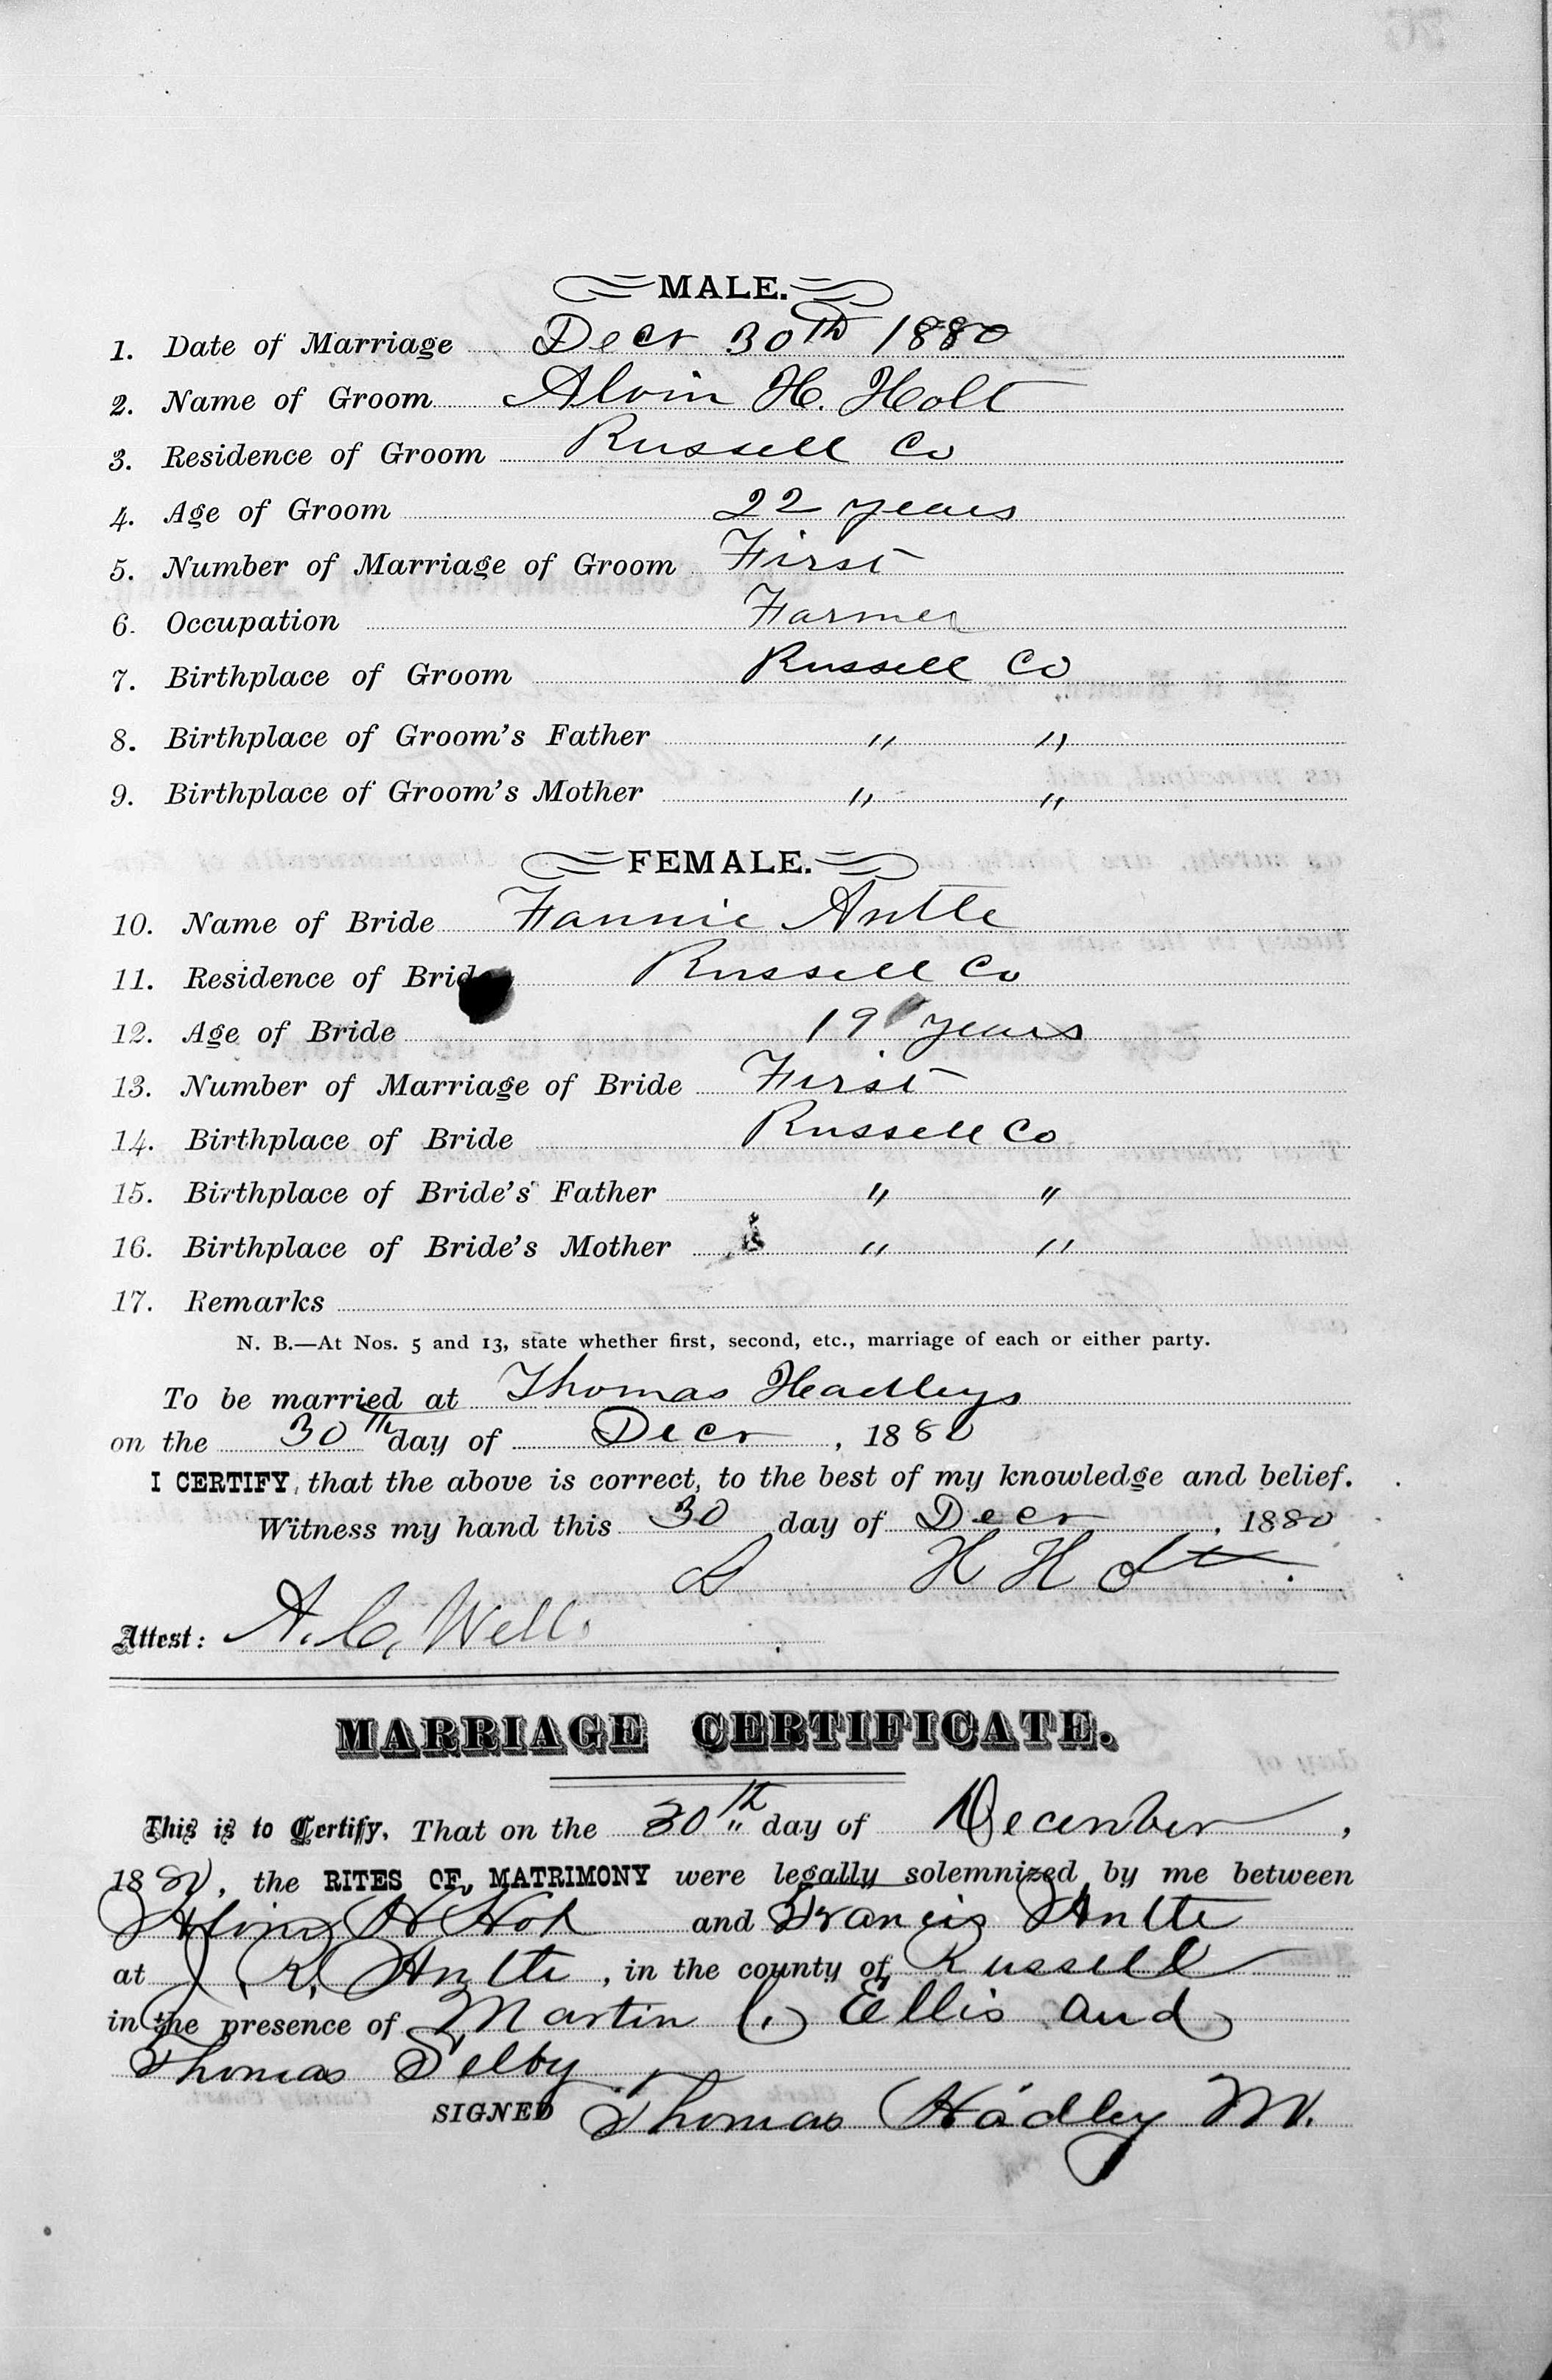 MALE.
1. Date of Marriage Decr 30th 1880
2. Name of Groom Alvin H. Holt
3. Residence of Groom Russell Co
4. Age of Groom 22 years
5. Number of Marriage of Groom First
6. Occupation Farmer
7. Birthplace of Groom Russell Co
8. Birthplace of Groom's Father " "
9. Birthplace of Groom's Mother " "
FEMALE.
10. Name of Bride Fannie Antle
11. Residence of Bride Russell Co
12. Age of Bride 19 years
13. Number of Marriage of Bride First
14. Birthplace of Bride Russell Co
15. Birthplace of Bride's Father " "
16. Birthplace of Bride's Mother " "
17. Remarks
N. B.—At Nos. 5 and 13, state whether first, second, etc., marriage of each or either party.
To be married at Thomas Headleys
on the 30th day of Decr, 1880
I CERTIFY, that the above is correct, to the best of my knowledge and belief.
Witness my hand this 30 day of Decr, 1880
H Holt
Attest: A. C. Wells
MARRIAGE CERTIFICATE.
This is to Certify, That on the 30th day of December,
1880, the RITES OF MATRIMONY were legally solemnized by me between
H Holt and Francis Antle
at J. R. Antle, in the county of Russell
in the presence of Martin C. Ellis and
Thomas Selby
SIGNED Thomas Hadley M.